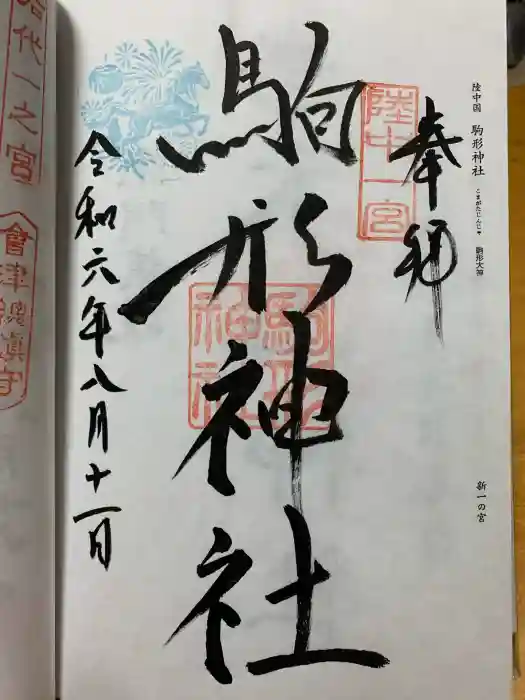 陸中国 駒形神社 こまがたじんじゃ 駒形大神
新一の宮
奉拝
陸中一宮
駒形神社
駒形神社
令和六年八月十一日
岩代一之宮
會津總鎮守